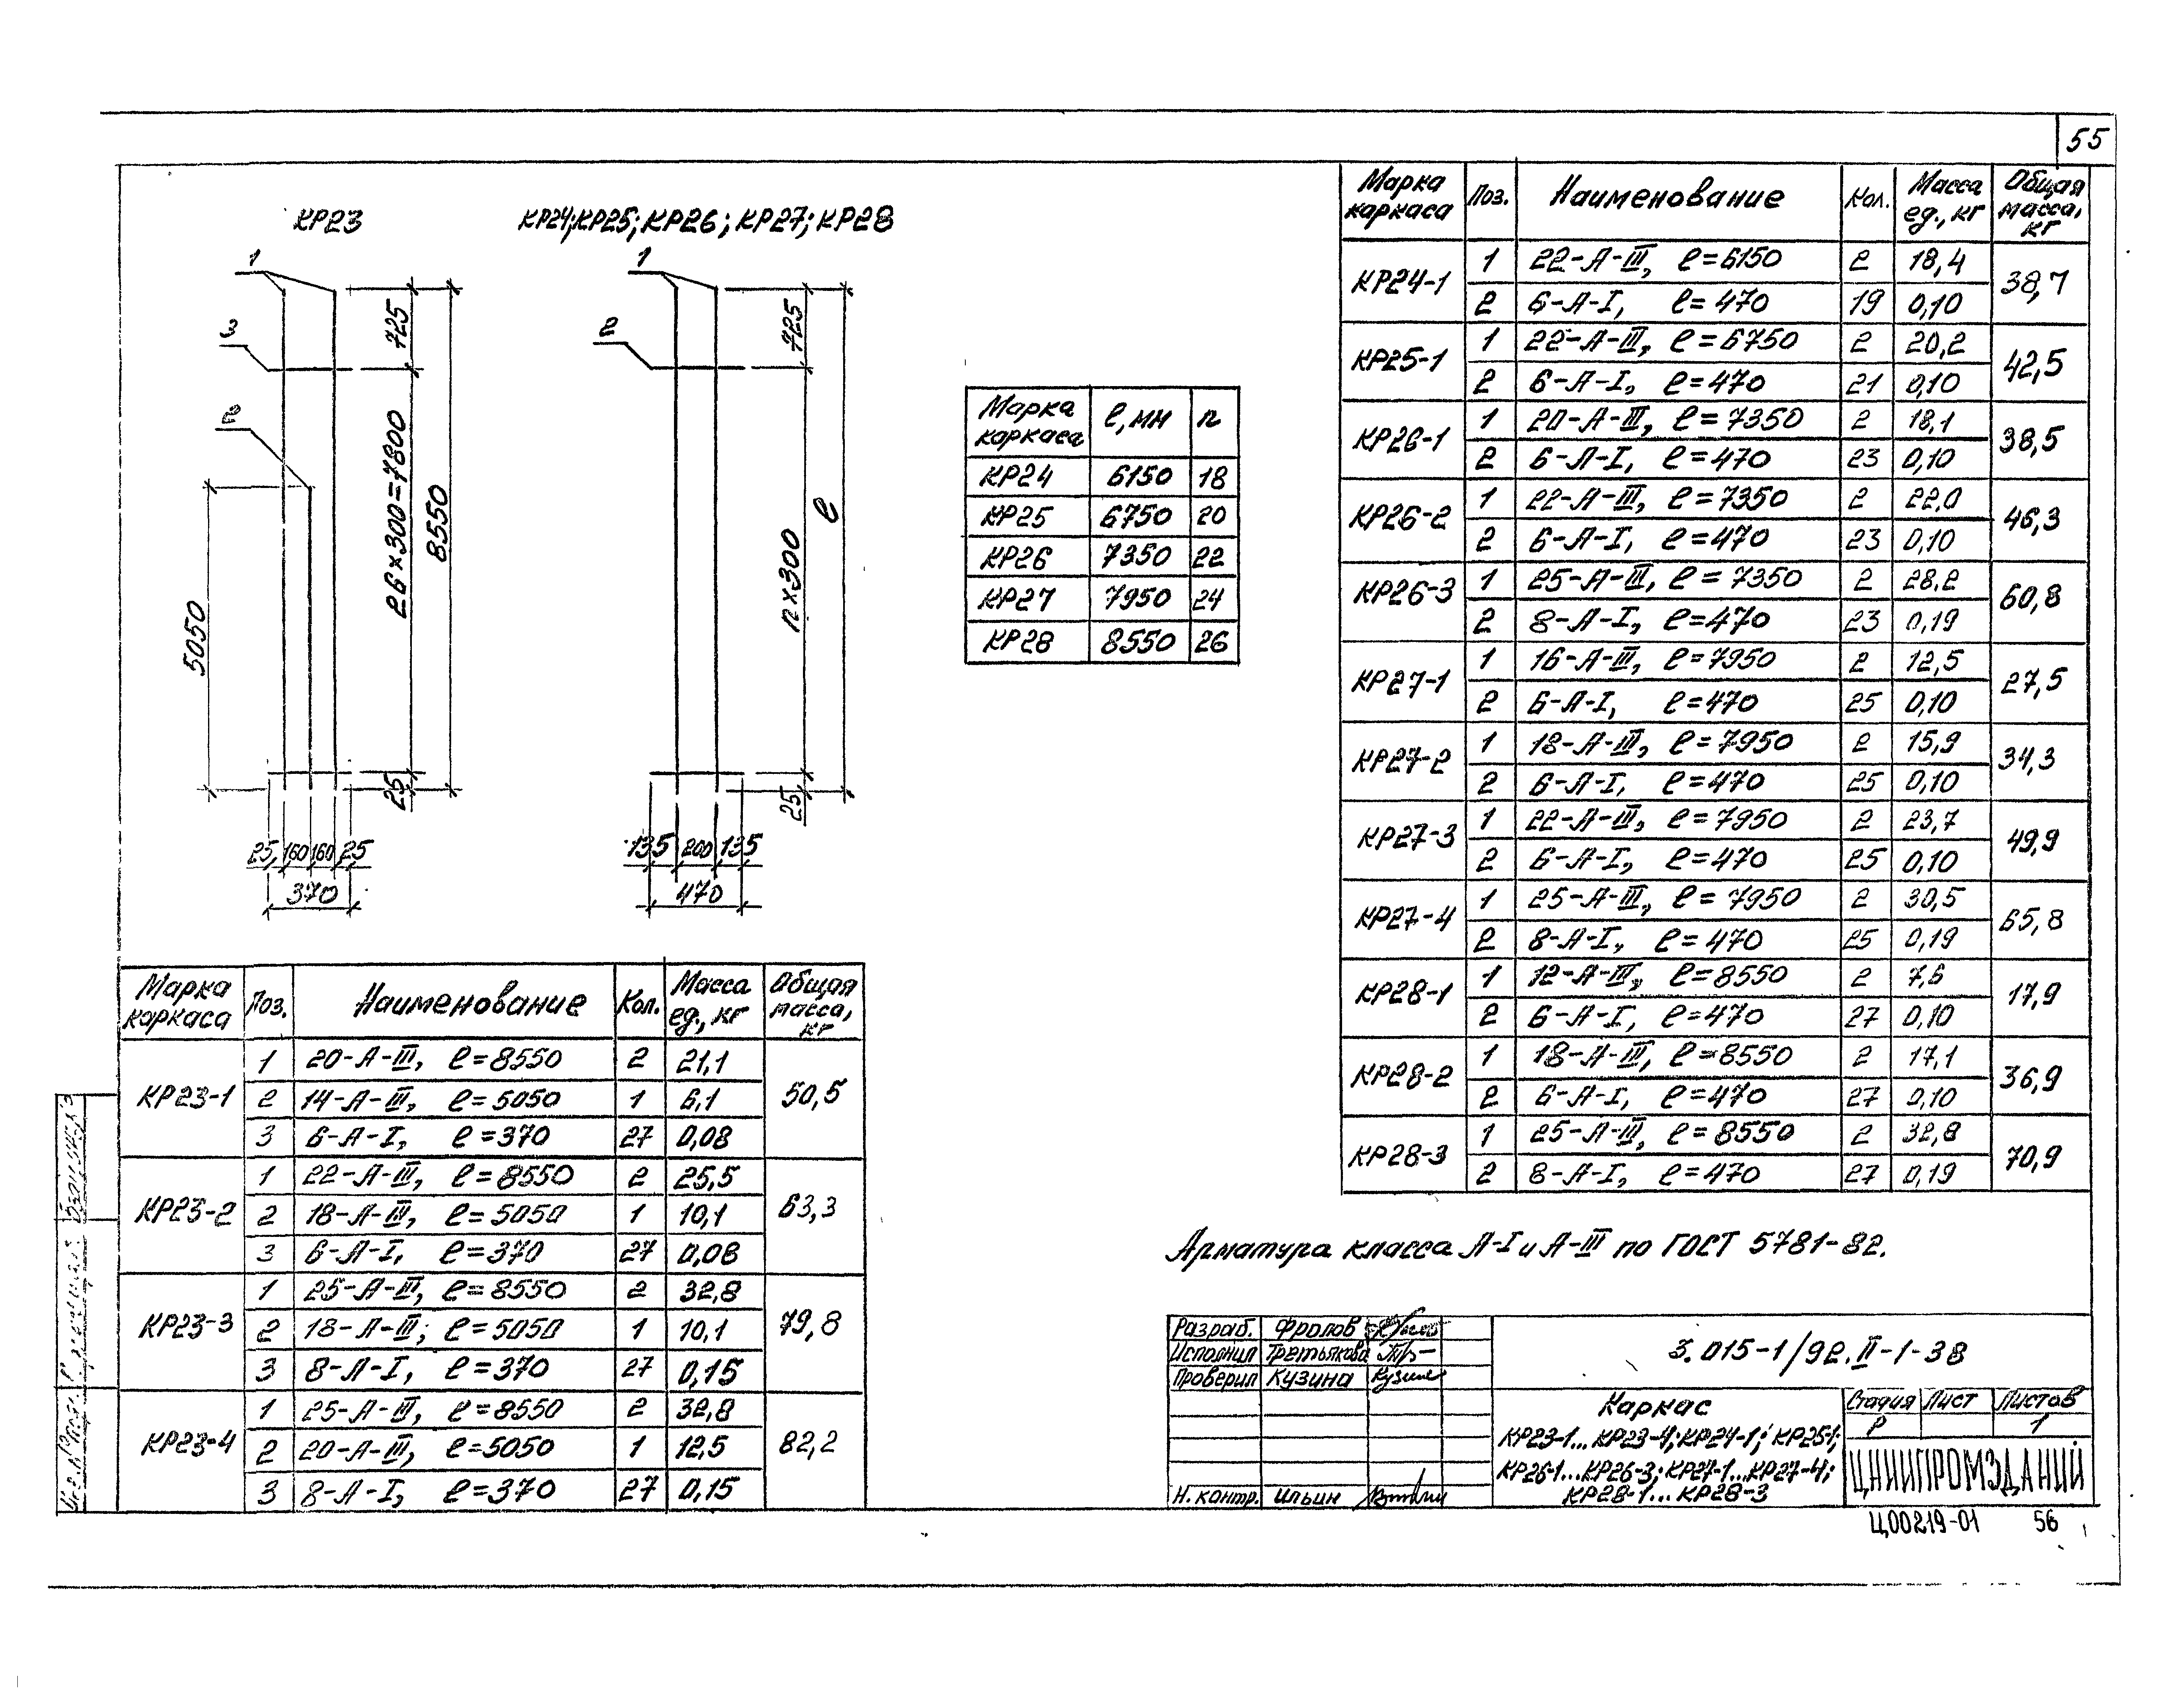 55
КР23
КР24; КР25; КР26; КР27; КР28
1
3
2
725
26×300=7800
8550
5050
25
25 160 160 25
370
1
2
725
n×300
ℓ
25
135 200 135
470
Марка каркаса ℓ, мм n
КР24 6150 18
КР25 6750 20
КР26 7350 22
КР27 7950 24
КР28 8550 26
Марка каркаса Поз. Наименование Кол. Масса ед., кг Общая масса, кг
КР23-1 1 20-А-III, ℓ=8550 2 21,1 50,5
2 14-А-III, ℓ=5050 1 6,1
3 6-А-I, ℓ=370 27 0,08
КР23-2 1 22-А-III, ℓ=8550 2 25,5 63,3
2 18-А-III, ℓ=5050 1 10,1
3 6-А-I, ℓ=370 27 0,08
КР23-3 1 25-А-III, ℓ=8550 2 32,8 79,8
2 18-А-III; ℓ=5050 1 10,1
3 8-А-I, ℓ=370 27 0,15
КР23-4 1 25-А-III, ℓ=8550 2 32,8 82,2
2 20-А-III, ℓ=5050 1 12,5
3 8-А-I, ℓ=370 27 0,15
Марка каркаса Поз. Наименование Кол. Масса ед., кг Общая масса, кг
КР24-1 1 22-А-III, ℓ=6150 2 18,4 38,7
2 6-А-I, ℓ=470 19 0,10
КР25-1 1 22-А-III, ℓ=6750 2 20,2 42,5
2 6-А-I, ℓ=470 21 0,10
КР26-1 1 20-А-III, ℓ=7350 2 18,1 38,5
2 6-А-I, ℓ=470 23 0,10
КР26-2 1 22-А-III, ℓ=7350 2 22,0 46,3
2 6-А-I, ℓ=470 23 0,10
КР26-3 1 25-А-III, ℓ=7350 2 28,2 60,8
2 8-А-I, ℓ=470 23 0,19
КР27-1 1 16-А-III, ℓ=7950 2 12,5 27,5
2 6-А-I, ℓ=470 25 0,10
КР27-2 1 18-А-III, ℓ=7950 2 15,9 34,3
2 6-А-I, ℓ=470 25 0,10
КР27-3 1 22-А-III, ℓ=7950 2 23,7 49,9
2 6-А-I, ℓ=470 25 0,10
КР27-4 1 25-А-III, ℓ=7950 2 30,5 65,8
2 8-А-I, ℓ=470 25 0,19
КР28-1 1 12-А-III, ℓ=8550 2 7,6 17,9
2 6-А-I, ℓ=470 27 0,10
КР28-2 1 18-А-III, ℓ=8550 2 17,1 36,9
2 6-А-I, ℓ=470 27 0,10
КР28-3 1 25-А-III, ℓ=8550 2 32,8 70,9
2 8-А-I, ℓ=470 27 0,19
Арматура класса А-I и А-III по ГОСТ 5781-82.
Разраб. Фролов
Исполнил Третьякова
Проверил Кузина
Н. контр. Ильин
3.015-1/92.II-1-38
Каркас
КР23-1...КР23-4; КР24-1; КР25-1;
КР26-1...КР26-3; КР27-1...КР27-4;
КР28-1...КР28-3
Стадия Лист Листов
Р 1
ЦНИИПРОМЗДАНИЙ
Ц00219-01 56